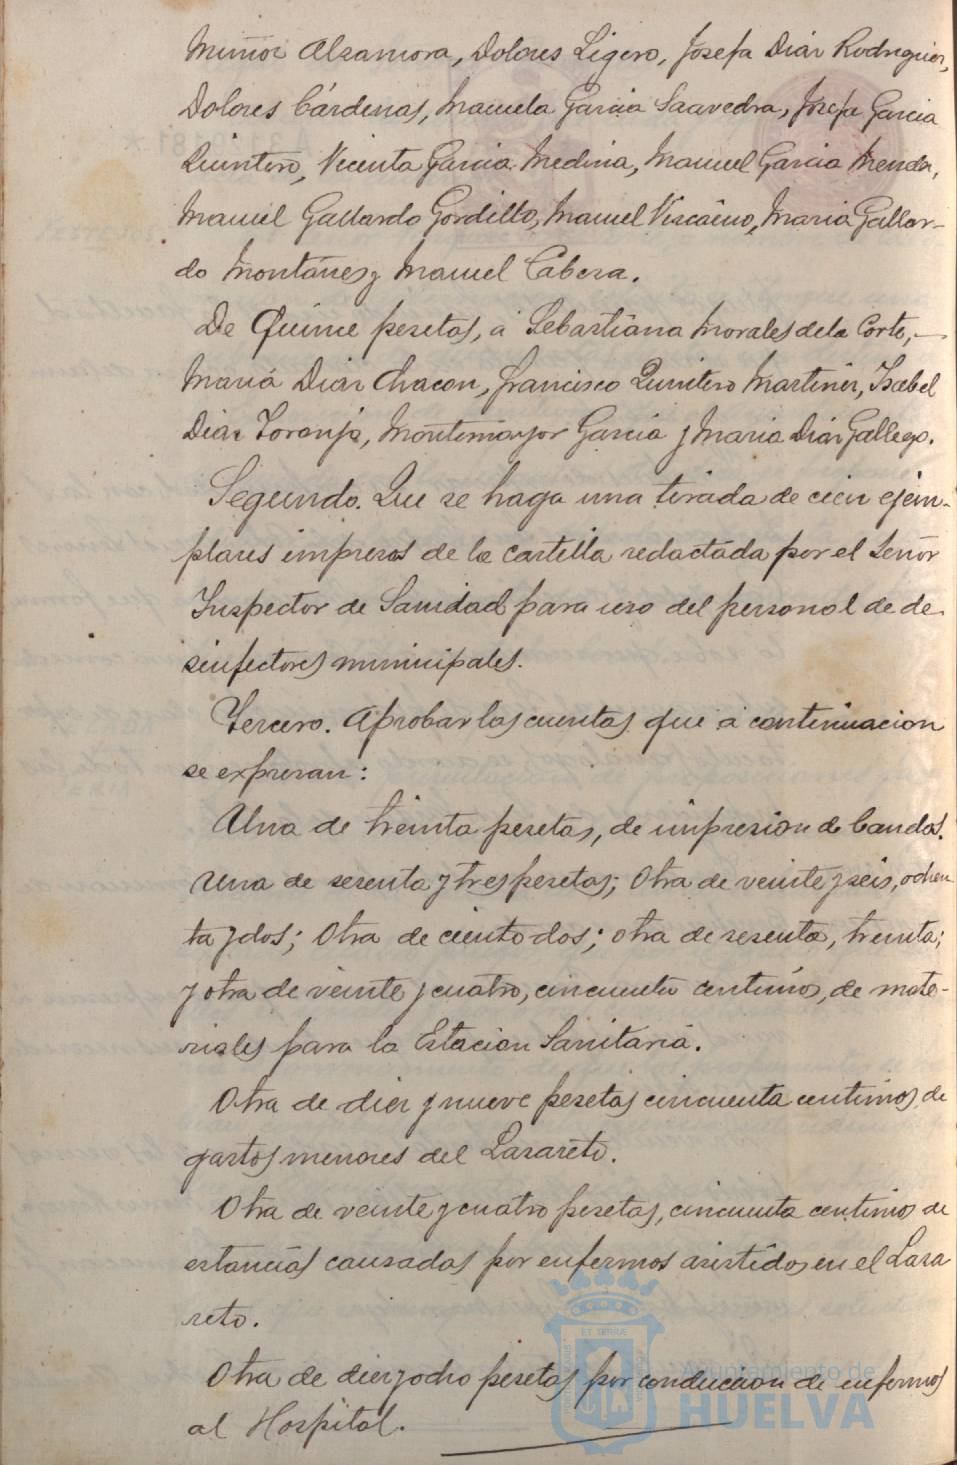 Muñoz Alzamora, Dolores Ligero, Josefa Diaz Rodriguez,
Dolores Cárdenas, Manuela Garcia Saavedra, Josefa Garcia
Quintero, Vicenta Garcia Medina, Manuel Garcia Menda,
Manuel Gallardo Gordillo, Manuel Viscaino, Maria Gallar-
do Montañes y Manuel Cabeza.
De Quince pesetas, á Sebastiana Morales de la Corte,—
Maria Diaz Chacon, Francisco Quintero Martinez, Isabel
Diaz Toronjo, Montemayor Garcia y Maria Diaz Gallego.
Segundo. Que se haga una tirada de cien ejem-
plares impresos de la cartilla redactada por el Señor
Inspector de Sanidad para uso del personal de de-
sinfectores municipales.
Tercero. Aprobar las cuentas que á continuacion
se expresan:
Una de treinta pesetas, de impresion de bandos.
Una de sesenta y tres pesetas; Otra de veinte y seis, ochen
ta y dos; Otra de ciento dos; otra de sesenta, treinta;
y otra de veinte y cuatro, cincuenta centimos, de mate-
riales para la Estacion Sanitaria.
Otra de diez y nueve pesetas cincuenta centimos de
gastos menores del Lazareto.
Otra de veinte y cuatro pesetas, cincuenta centimos de
estancias causadas por enfermos asistidos en el Laza
reto.
Otra de diez y ocho pesetas por conduccion de enfermos
al Hospital.
Ayuntamiento de
HUELVA